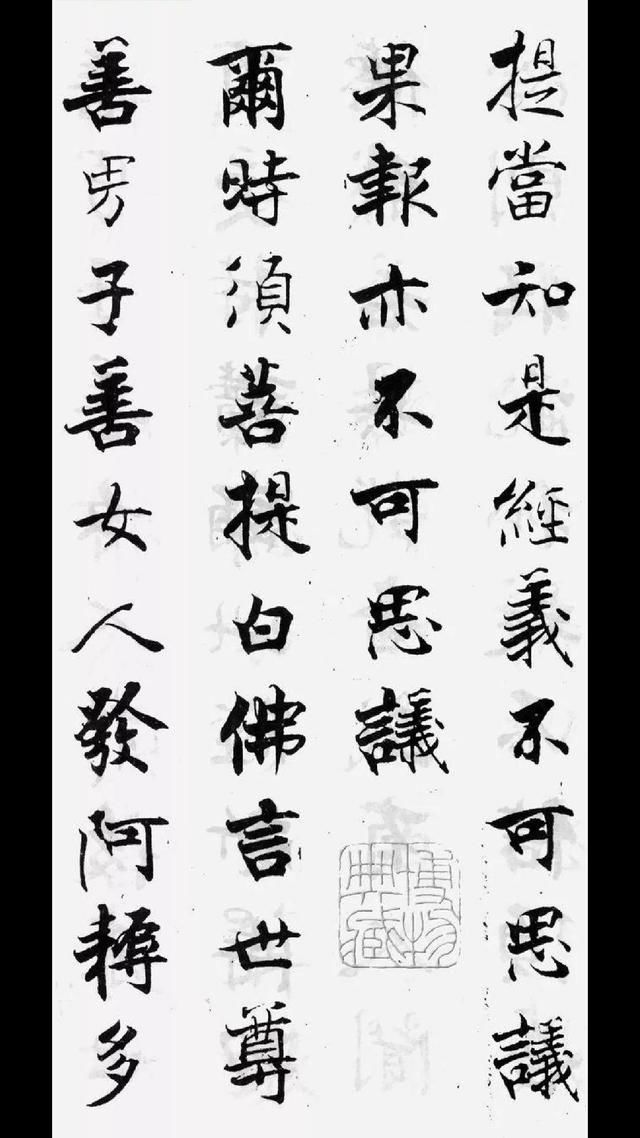 提當知是經義不可思議
果報亦不可思議
爾時須菩提白佛言世尊
善男子善女人發阿耨多
博物典藏